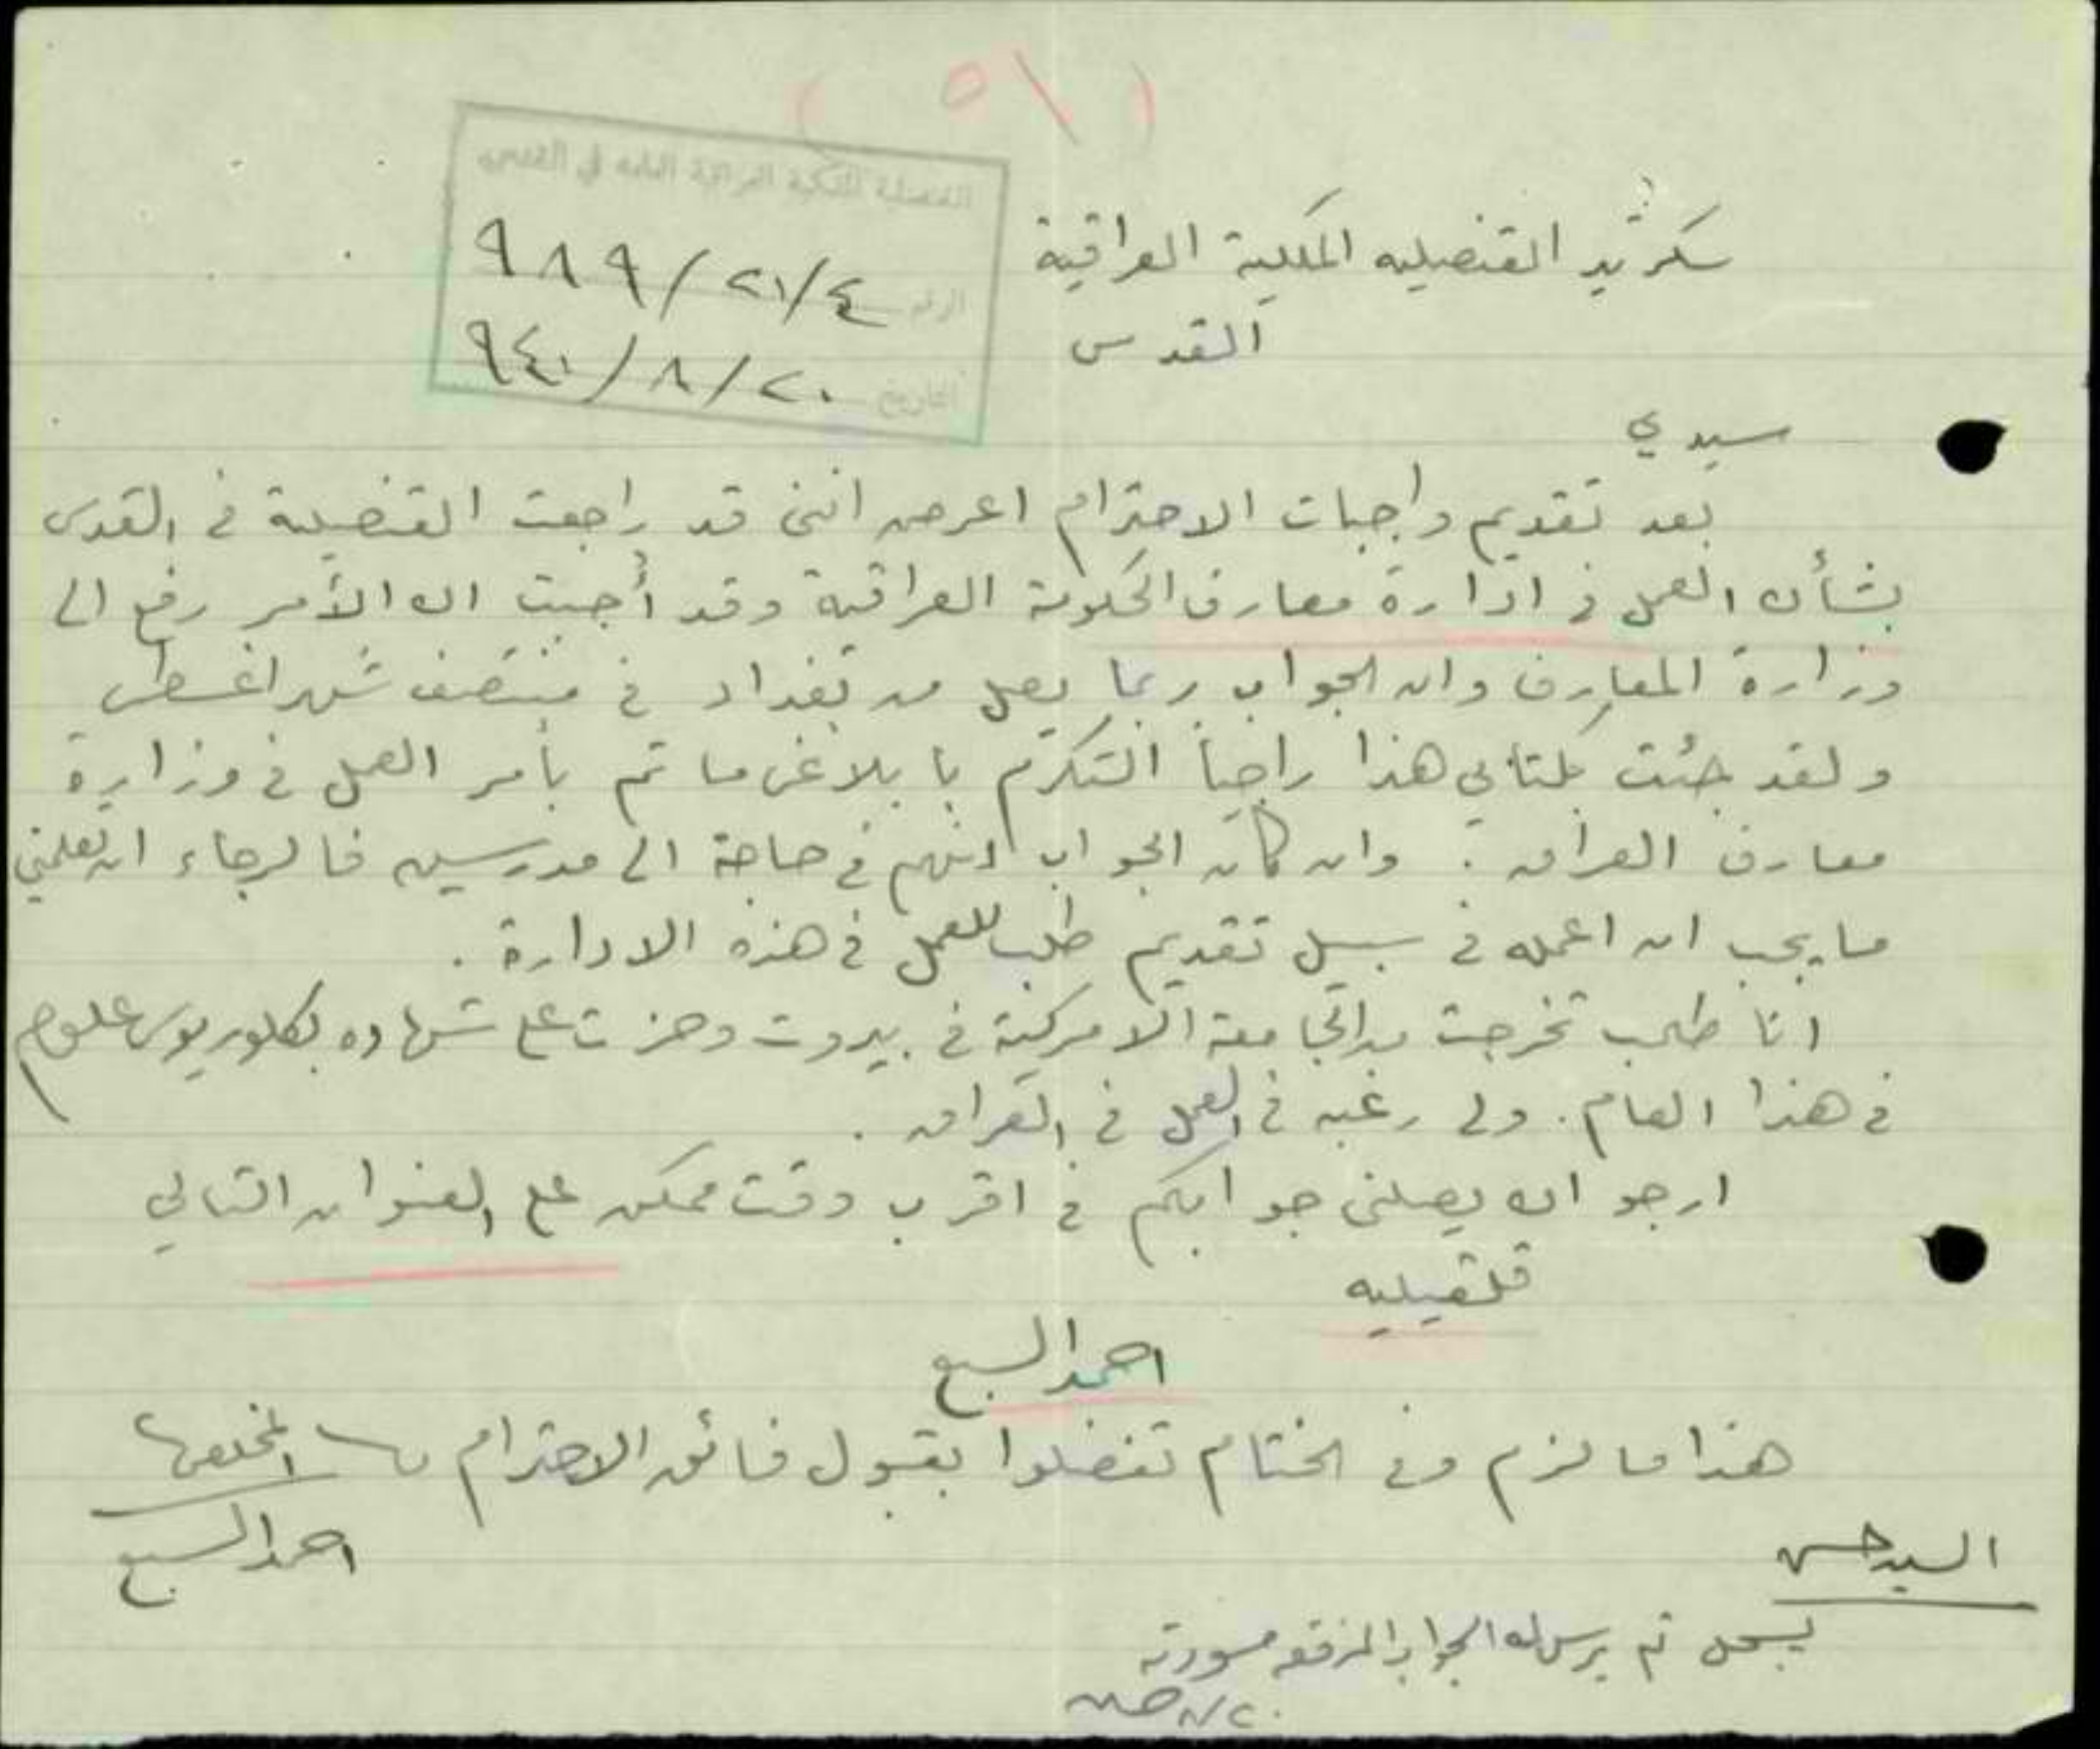 ( ٥١ )
القنصلية الملكية العراقية العامة في القدس
الرقم ٩٨٩/٢١/٤
التاريخ ٩٤٠/٨/٢٠
سكرتير القنصليه الملكية العراقية
القدس
سيدي
بعد تقديم واجبات الاحترام اعرض انني قد راجعت القنصلية في القدس
بشأن العمل في ادارة معارف الحكومة العراقية وقد أجبت ان الأمر رفع الى
وزارة المعارف وان الجواب ربما يصل من بغداد في منتصف شهر اغسطس
ولقد جئت بكتابي هذا راجياً التكرم بابلاغي ما تم بأمر العمل في وزارة
معارف العراق . وان كان الجواب انهم في حاجة الى مدرسين فالرجاء ان تعلمني
ما يجب ان اعمله في سبيل تقديم طلب للعمل في هذه الادارة .
انا طالب تخرجت من الجامعة الامركية في بيروت وحزت على شهاده بكلوريوس علوم
في هذا العام . ولي رغبه في العمل في العراق .
ارجو ان يصلني جوابكم في اقرب وقت ممكن على العنوان التالي
قلقيليه
احمد السبع
هذا ما لزم وفي الختام تفضلوا بقبول فائق الاحترام المخلص
احمد السبع
السيد حسن
يسجل ثم يرسل له الجواب المرفقه مسودته
٨/٢٠